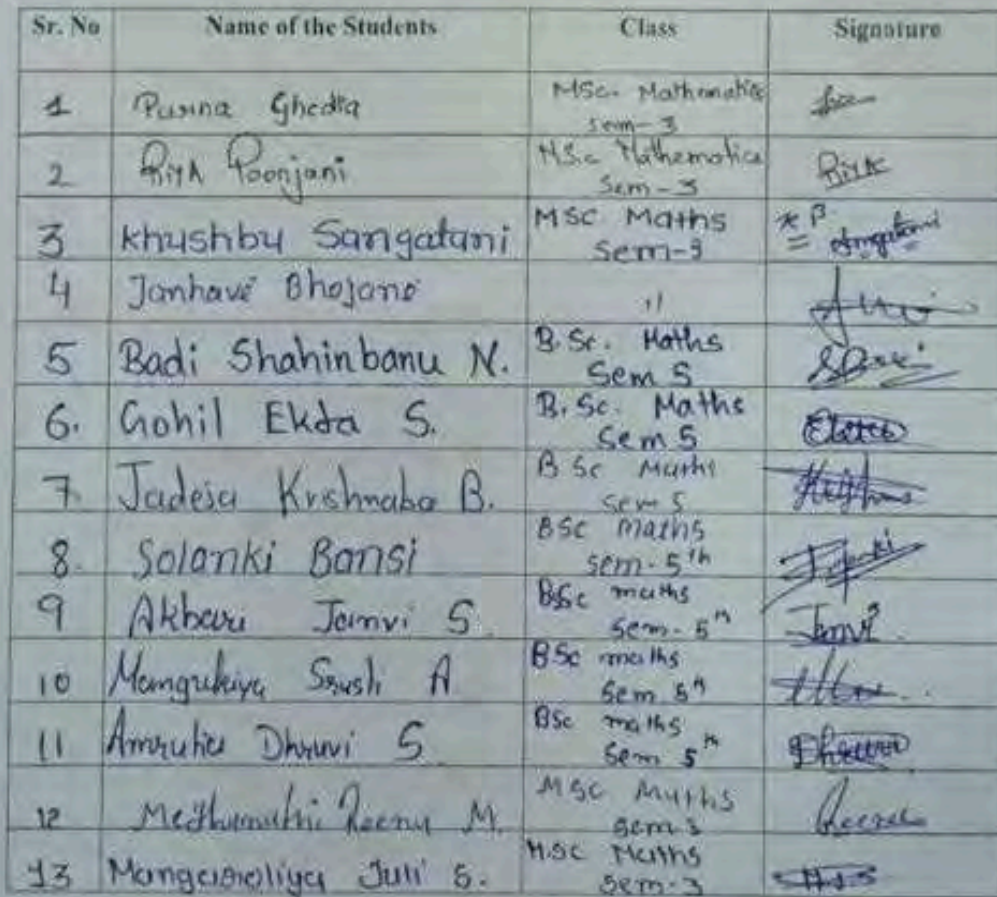 Sr. No Name of the Students Class Signature
1 Purna Ghedia MSc. Mathematics
sem-3
2 Riya Poonjani M.Sc Mathematics Riya
Sem-3
3 Khushbu Sangatani MSC Maths
Sem-3
4 Janhavi Bhojani "
5 Badi Shahinbanu N. B.Sc. Maths
Sem 5
6. Gohil Ekta S. B.Sc. Maths
Sem 5
7. Jadeja Krishnaba B. B Sc Maths
Sem 5
8. Solanki Bansi BSc maths
sem-5th
9 Akbari Janvi S. BSc maths Janvi
sem-5th
10 Mangukiya Srush A BSc maths
Sem 5th
11 Amrutia Dhruvi S BSc maths
Sem 5th
12 Reenu M. MSC Maths Reenu
sem 3
13 Juli S. M.SC Maths
sem-3